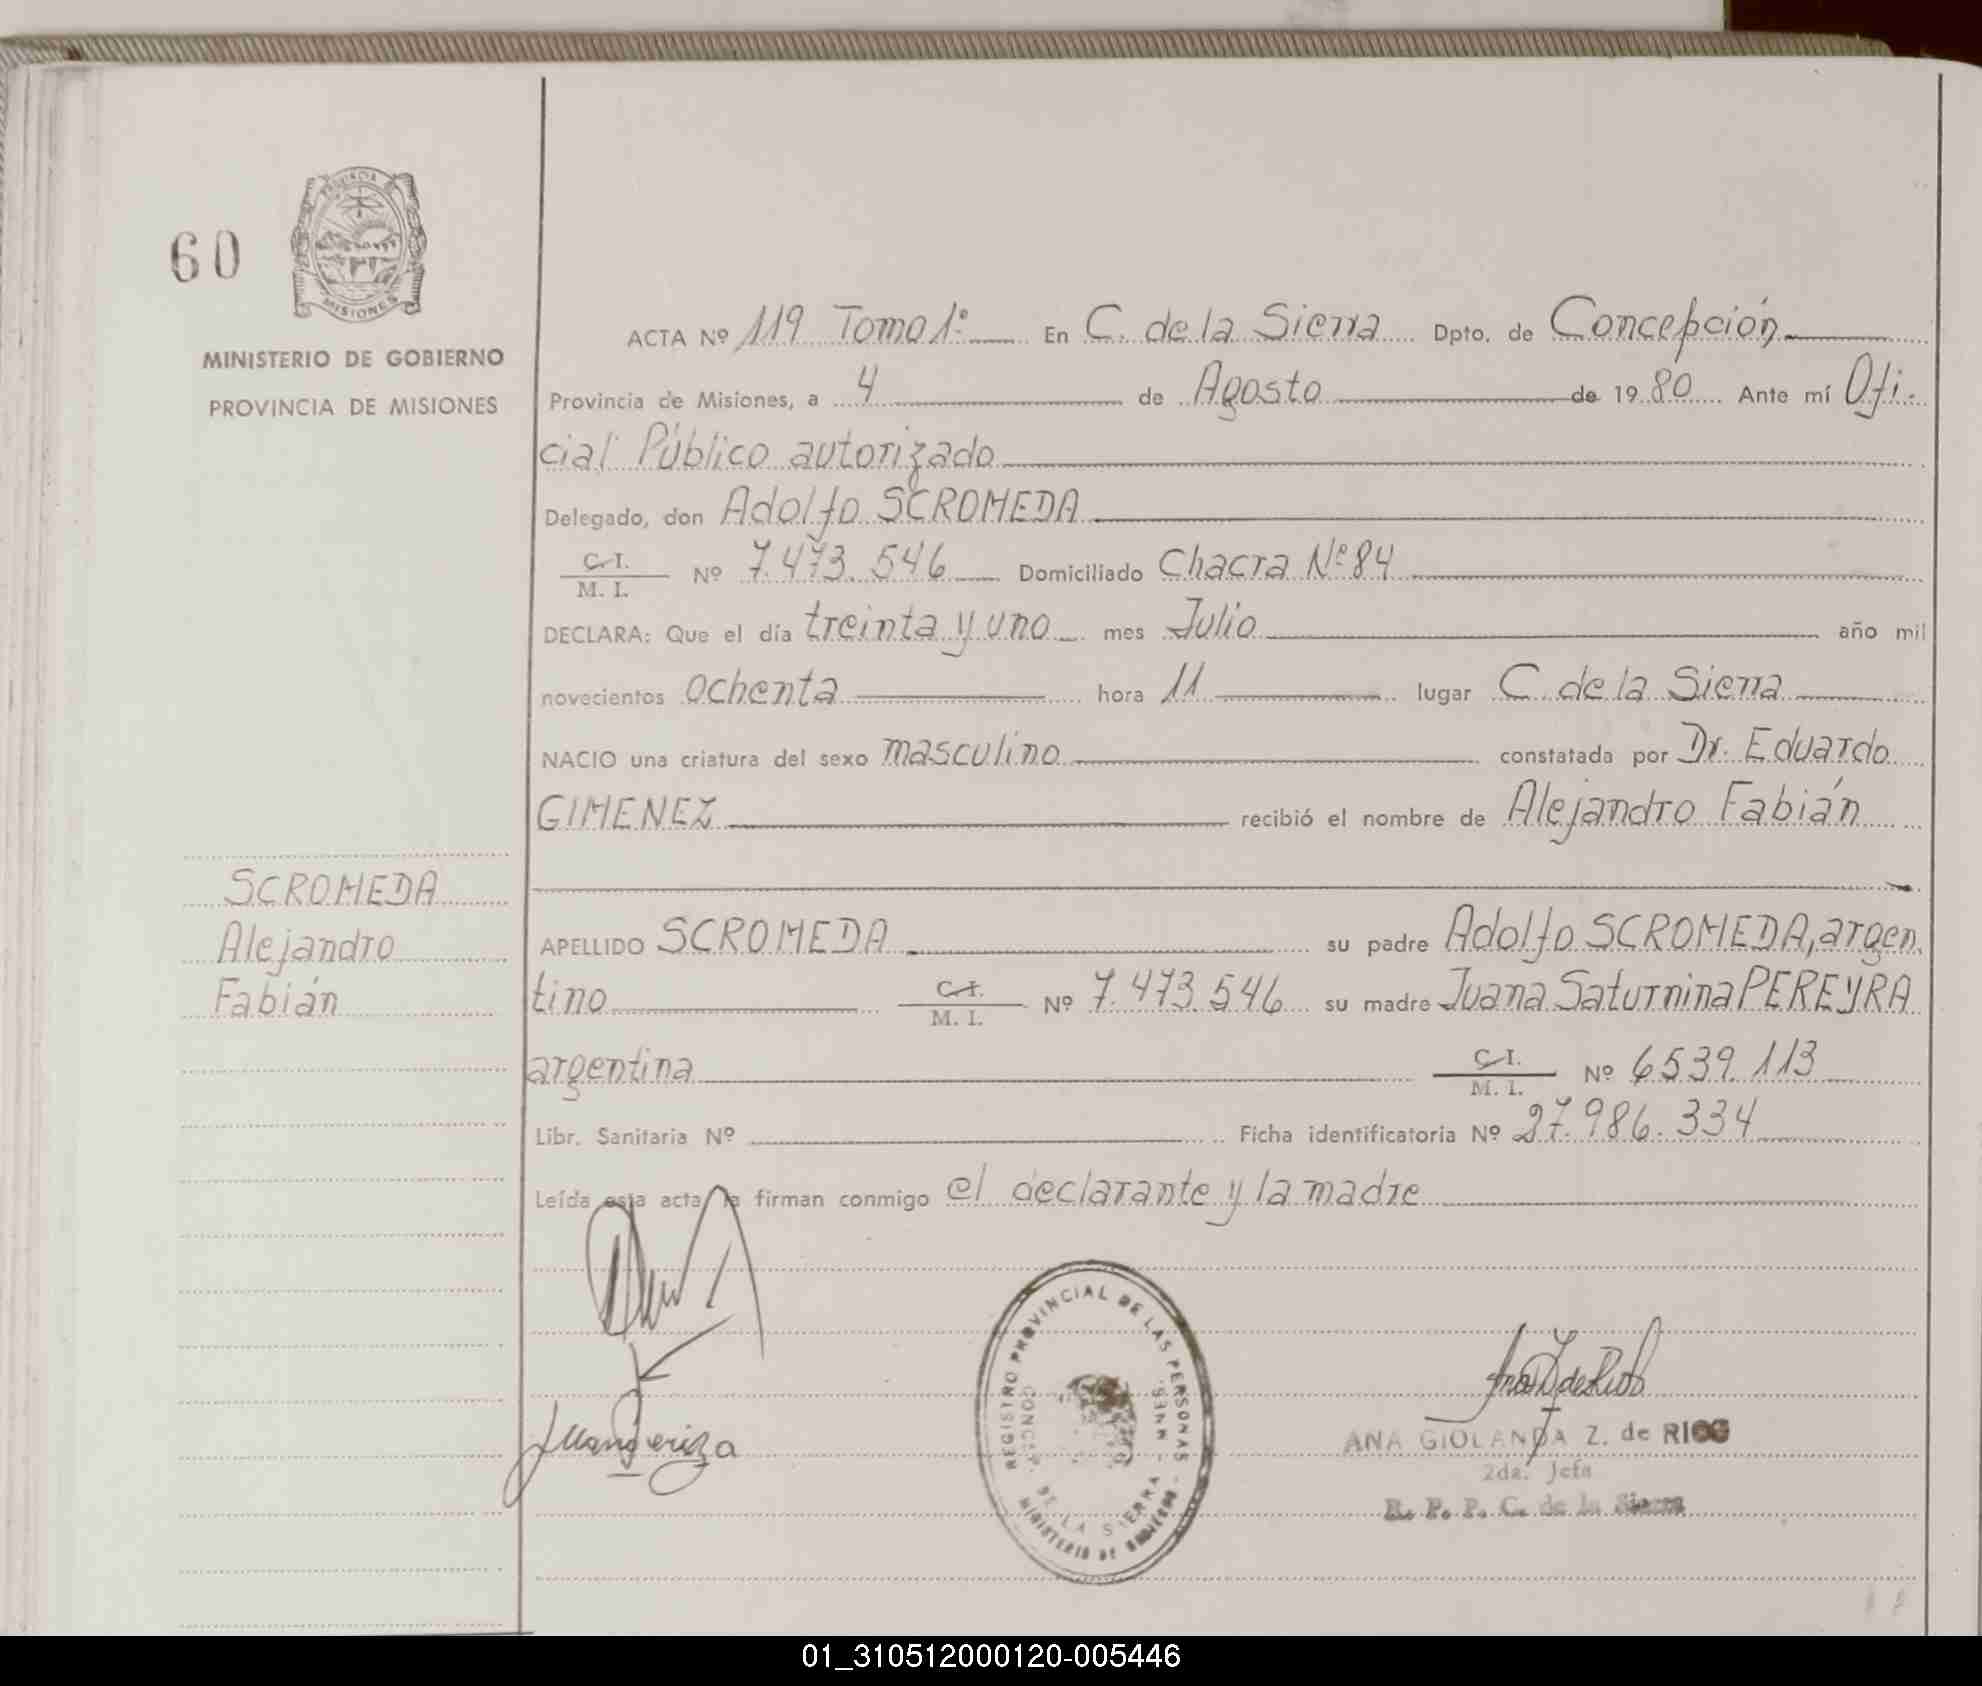 60
PROVINCIA
MISIONES
MINISTERIO DE GOBIERNO
PROVINCIA DE MISIONES
ACTA Nº 119 Tomo 1º En C. de la Sierra Dpto. de Concepción
Provincia de Misiones, a 4 de Agosto de 1980 Ante mí Ofi-
cial Público autorizado
Delegado, don Adolfo SCROMEDA
C. I.
M. I.
Nº 7.473.546 Domiciliado Chacra Nº 84
DECLARA: Que el día treinta y uno mes Julio año mil
novecientos ochenta hora 11 lugar C. de la Sierra
NACIO una criatura del sexo masculino constatada por Dr. Eduardo
GIMENEZ recibió el nombre de Alejandro Fabián
SCROMEDA
Alejandro
Fabián
APELLIDO SCROMEDA su padre Adolfo SCROMEDA, argen
tino C. I.
M. I.
Nº 7.473.546 su madre Juana Saturnina PEREYRA
argentina C. I.
M. I.
Nº 6539.113
Libr. Sanitaria Nº Ficha identificatoria Nº 27.986.334
Leída esta acta la firman conmigo el declarante y la madre
REGISTRO PROVINCIAL DE LAS PERSONAS
CONCEP. DE LA SIERRA - MNES.
MINISTERIO DE GOBIERNO
ANA GIOLANDA Z. de RIOS
2da. Jefa
R. P. P. C. de la Sierra
01_310512000120-005446